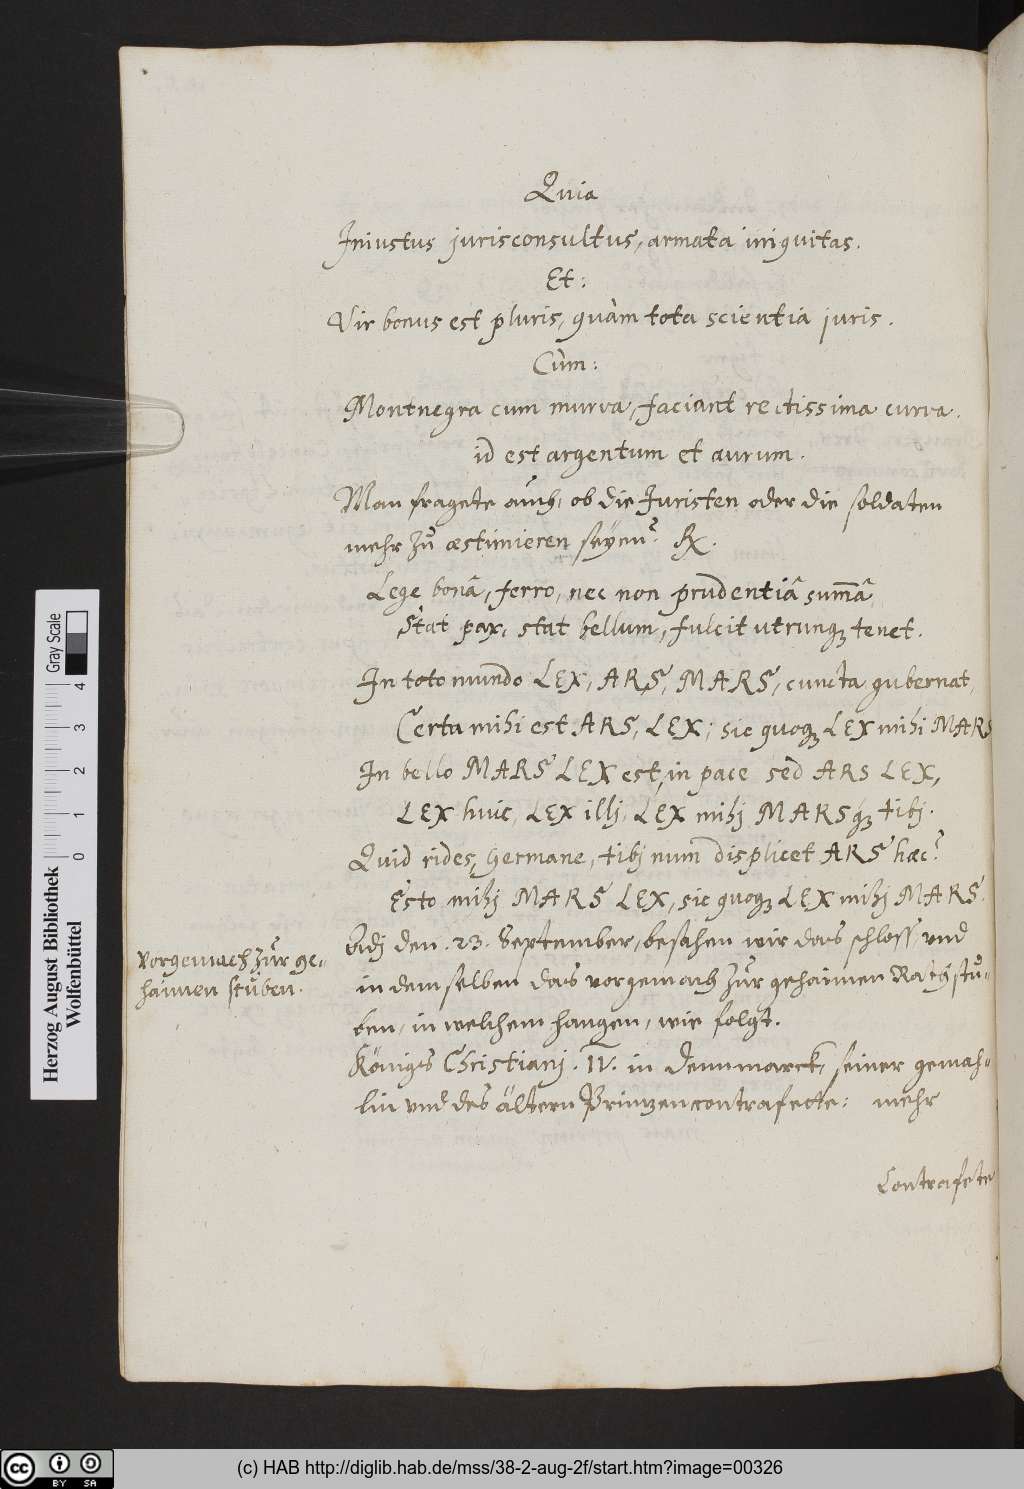 Quia
Iniustus jurisconsultus, armata iniquitas.
Et:
Vir bonus est pluris, quàm tota scientia juris.
Cùm:
Montnegra cum murva, faciant rectissima curva.
id est argentum et aurum.
Man fragete auch, ob die Juristen oder die soldaten
mehr zŭ æstimieren seyen? ℞.
Lege bonâ, ferro, nec non prudentiâ sum̄â,
Stat pax, stat bellum, fulcit utrunqꝫ tenet.
In toto mundo LEX, ARS, MARS, cuncta gubernat,
Certa mihi est ARS, LEX; sic quoqꝫ LEX mihi MARS
In bello MARS LEX est, in pace sed ARS LEX,
LEX huic, LEX illj, LEX mihj MARSqꝫ tibj.
Quid rides, Germane, tibj num displicet ARS hæc?
Esto mihj MARS LEX, sic quoqꝫ LEX mihj MARS.
Vorgemach zŭr ge-
häimen stŭben.
Adj den .23. September, besahen wir das schloss, vnd
in demselben das vorgemach zŭr gehaimen Rathstŭ-
ben, in welchem hangen, wie folgt.
Königs Christianj .IV. in Dennmarck, seiner gemah-
lin vnd des ältern Printzen contrafette: mehr
Contrafete
Herzog August Bibliothek
Wolfenbüttel
Gray Scale
0 1 2 3 4
BY SA
(c) HAB http://diglib.hab.de/mss/38-2-aug-2f/start.htm?image=00326